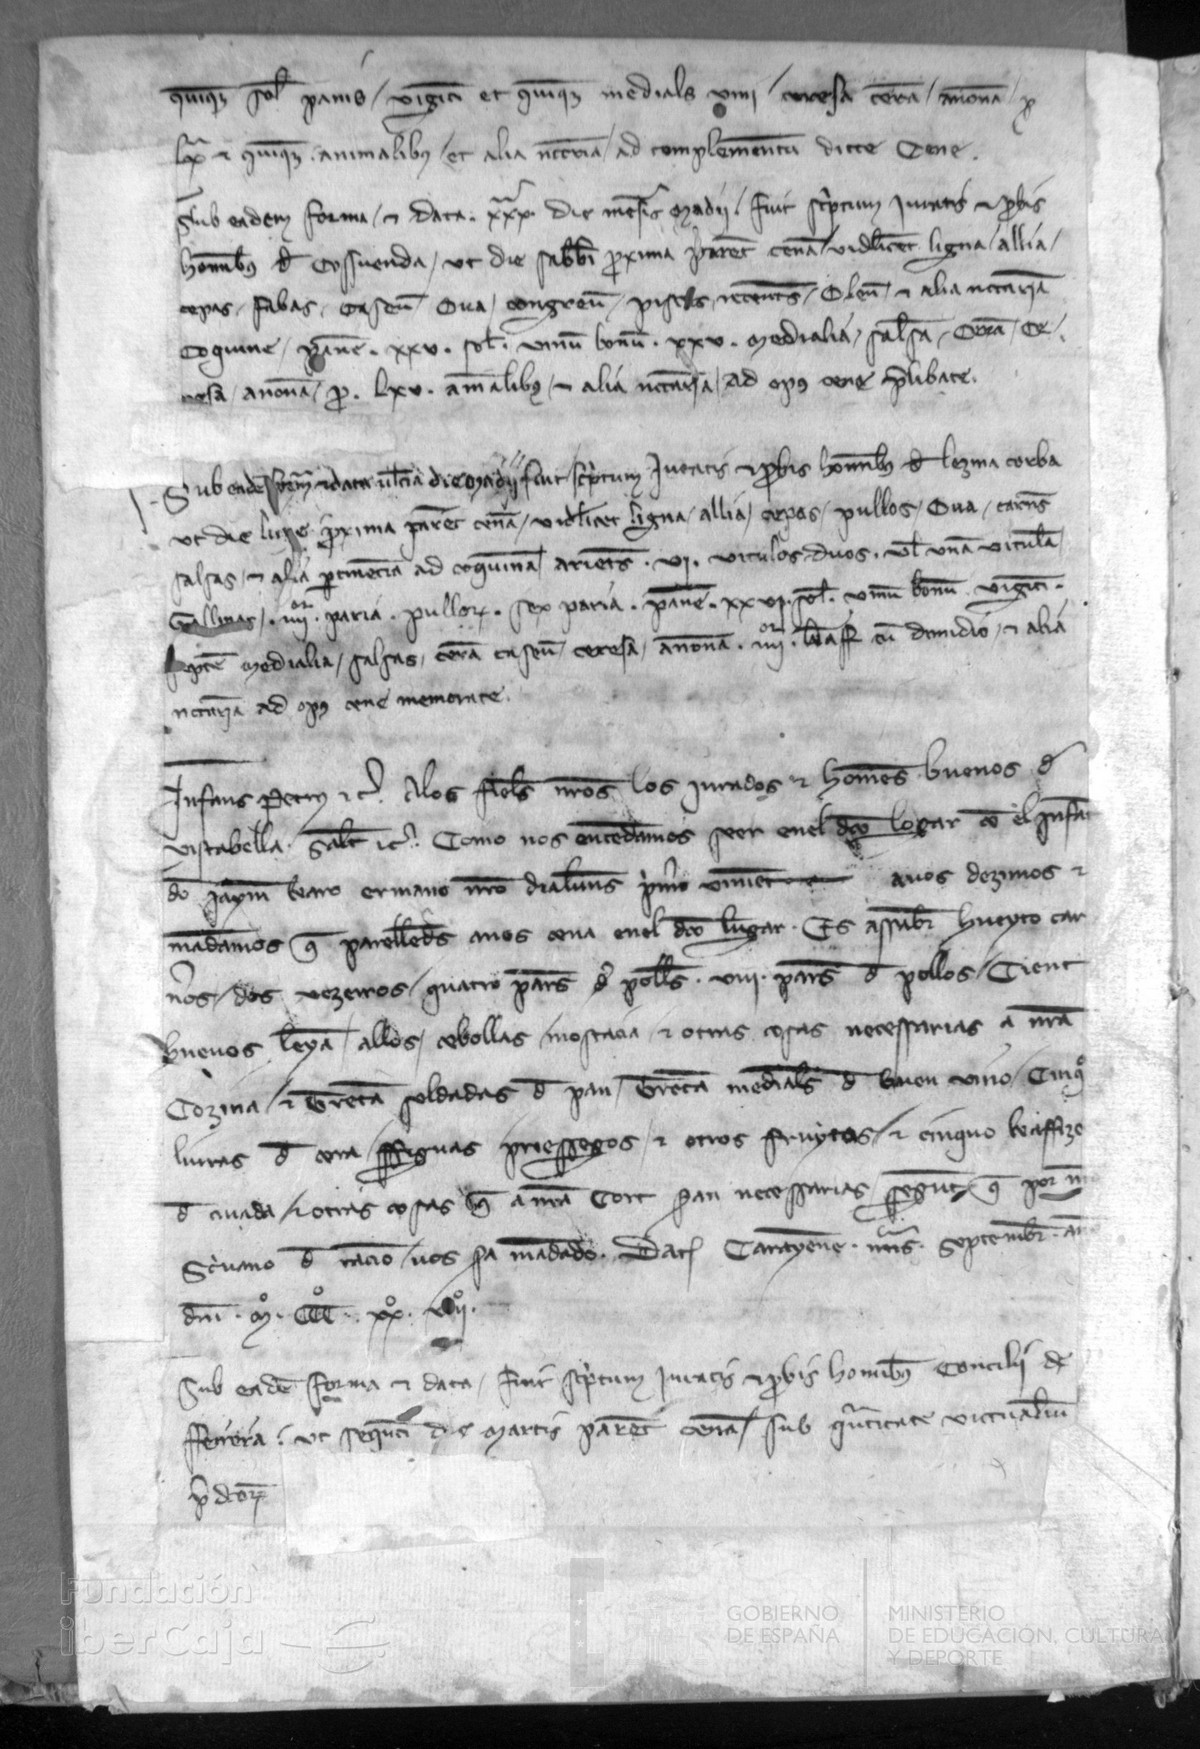 quinq3 sol panis / viginti et quinq3 medials vini / ceresa cera / anonã / p
lx et quinq3 animalibus / et alia nccria / ad complementũ dicte Cene.
Sub eadem forma / et data . xxx . die mẽsis Madii / fuit scriptum Juratis et probis
hominibus de Cossuenda / ut die sabbi proxima paret cenã / videlicet ligna / allia /
cepas / fabas / Caseũ / Ova / congreũ / pisces recentes / Oleũ et alia nccaria
Coquine / pane . xxv . sol . vinũ bonũ . xxv . medialia / salsa / Cera / Ce
resa / anonã / pro . lxv . animalibus / et alia nccaria / ad opus cene plibate.
Sub eadem forma et data ultia die Madii fuit scriptum Juratis et probis hominibus de lezina corba
ut die lune proxima paret cenã / videlicet ligna / allia / cepas / pullos / Ova / carnes
salsas / et alia ptinecia ad coquinã / arietes . vi . vitulos duos . vel unã vitulã /
Gallinas / . iiii or . paria . pullor . sex paria . pane . xxvi . sol . vinũ bonũ . viginti .
septẽ medialia / salsas / cerã caseũ / ceresa / anonã . iiii or . kaff cũ dimidio / et alia
nccaria ad opus cene memorate.
Infans Petrus etc. Alos fieles nros los jurados et homes buenos de
vistabella . Salt etc. Como nos entẽdamos seer enel dco logar cõ el Infãt
dõ Jayme caro ermano nro dialuns primo vinient avos dezimos et
mãdamos q parelledes anos cena enel dco lugar . Es assaber hueyto car
neros / dos vezerros / quatro pares de polls . viii . pares de pollos / Cient
huevos leyã / allos / cebollas / mostacia / et otras cosas necessarias a nra
Cozina / et Trenta soldadas de pan / Trenta medials de buen vino / Cinquo
liuras de cera / ffiguas priessegos / et otros fruytos / et cinquo kaffize
de civada / et otras cosas q a nra Cort sean necessarias segunt q por nro
Scrivano de racio vos sea mãdado . Dat Carinyene . nonas . septembr . anno
dni . Mº . CCCº . xxº . viiº .
Sub eadẽ forma et data / fuit scriptum Juratis et probis hominibus Concilii de
fferrera . ut sequti die Martis paret cenã / sub quãtitate victualiũ
pdcor
Fundación
iberCaja
GOBIERNO
DE ESPAÑA
MINISTERIO
DE EDUCACIÓN, CULTURA
Y DEPORTE